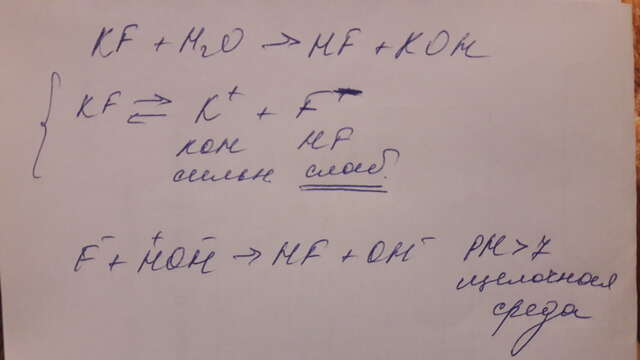 KF + H2O → HF + KOH
KF ⇌ K+ + F-
KOH HF
сильн слаб.
F- + H+OH- → HF + OH- PH>7
щелочная
среда